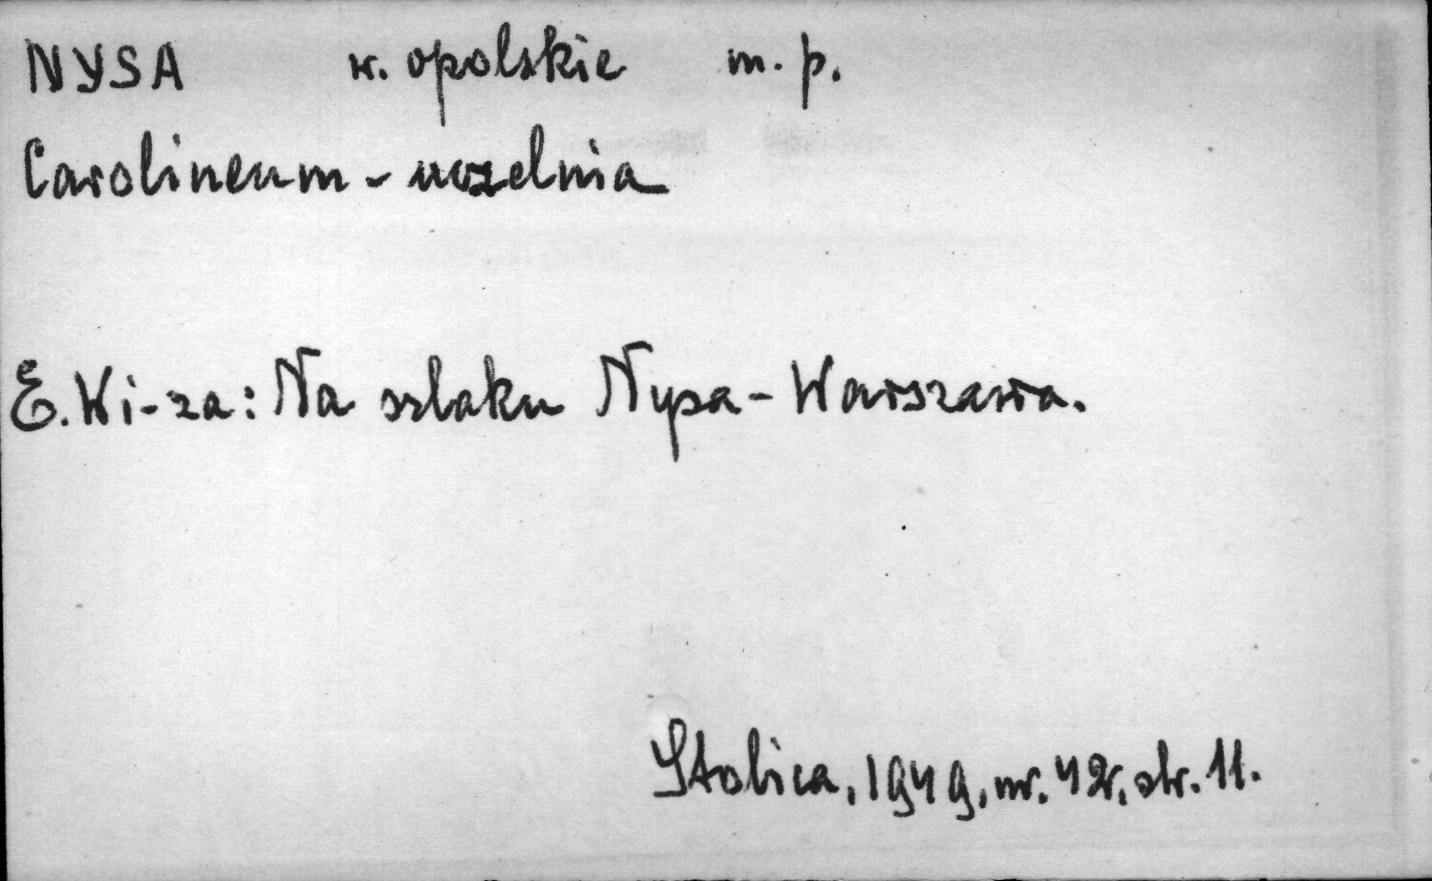 NYSA w. opolskie m. p.
Carolineum - uczelnia
E. Wi-za: Na szlaku Nysa - Warszawa.
Stolica, 1949, nr. 42, str. 11.